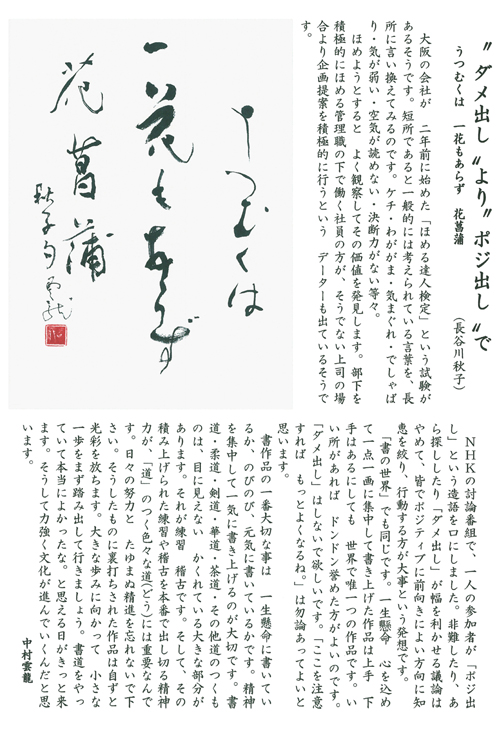 〝ダメ出し〟より〝ポジ出し〟で
うつむくは　一花もあらず　花菖蒲
（長谷川秋子）
大阪の会社が　二年前に始めた「ほめる達人検定」という試験が
あるそうです。短所であると一般的には考えられている言葉を、長
所に言い換えてみるのです。ケチ・わがまま・気まぐれ・でしゃば
り・気が弱い・空気が読めない・決断力がない等々。
ほめようとすると　よく観察してその価値を発見します。部下を
積極的にほめる管理職の下で働く社員の方が、そうでない上司の場
合より企画提案を積極的に行うという　データーも出ているそうで
す。
うつむくは
一花もあらず
花菖蒲
秋子句
NHKの討論番組で、一人の参加者が「ポジ出
し」という造語を口にしました。非難したり、あ
ら探ししたり「ダメ出し」が幅を利かせる議論は
やめて、皆でポジティブに前向きによい方向に知
恵を絞り、行動する方が大事という発想です。
「書の世界」でも同じです。一生懸命　心を込め
て一点一画に集中して書き上げた作品は上手　下
手はあるにしても　世界で唯一つの作品です。い
い所があれば　ドンドン誉めた方がよいのです。
「ダメ出し」はしないで欲しいです。「ここを注意
すれば　もっとよくなるね。」は勿論あってよいと
思います。
書作品の一番大切な事は　一生懸命に書いてい
るか、のびのび、元気に書いているかです。精神
を集中して一気に書き上げるのが大切です。書
道・柔道・剣道・華道・茶道・その他道のつくも
のは、目に見えない　かくれている大きな部分が
あります。それが練習　稽古です。そして、その
積み上げられた練習や稽古を本番で出し切る精神
力が、「道」のつく色々な道（どう）には重要なんで
す。日々の努力と　たゆまぬ精進を忘れないで下
さい。そうしたものに裏打ちされた作品は自ずと
光彩を放ちます。大きな歩みに向かって　小さな
一歩をまず踏み出して行きましょう。書道をやっ
ていて本当によかったな。と思える日がきっと来
ます。そうして力強く文化が進んでいくんだと思
います。
中村雲龍